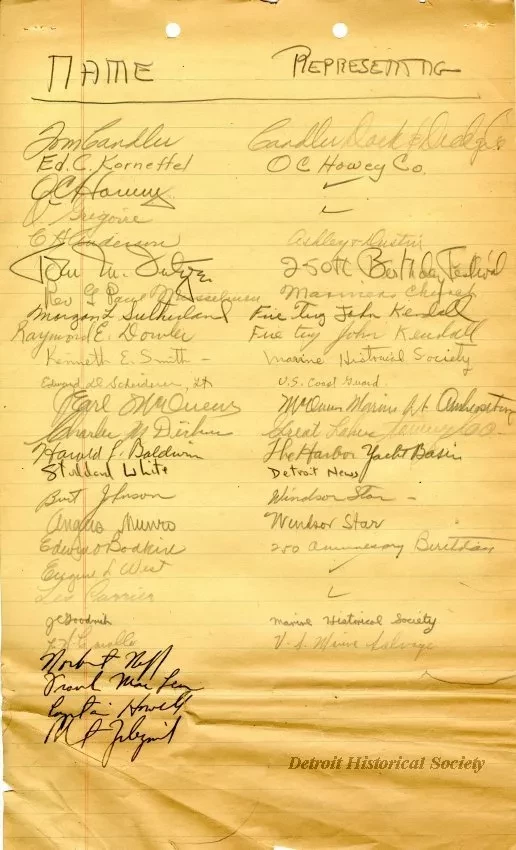 NAME REPRESENTING
Tom Candler Candler Dock & Dredge Co
Ed. C. Kornettel O C Howey Co.
O C Howey ✓
Gregoire ✓
C H Anderson Ashley & Dustin
250th Birthday Festival
Rev G Paul Musselman Mariners Church
Morgan L Sutherland Fire tug John Kendall
Raymond E. Dowler Fire tug John Kendall
Kenneth E. Smith – Marine Historical Society
Edward Scheiderer, Lt U.S. Coast Guard
Earl McQueen McQueen Marine Lt. Amherstburg
Charles M Great Lakes
Harold L. Baldwin The Harbor Yacht Basin
Stoddard White Detroit News
Burt Johnson Windsor Star –
Angus Munro Windsor Star
Edwin O Bodkin 250 Birthday
Eugene L West ✓
Les ✓
J C Goodrich Marine Historical Society
U.S. Salvage
Norbert Neff
Frank Mac
Captain Howell
Detroit Historical Society